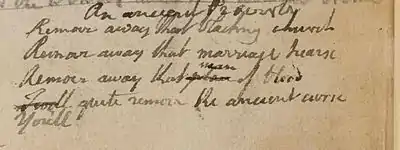 An ancient Proverb
Remove away that blackning church
Remove away that marriage hearse
Remove away that man of blood
quite remove the ancient curse
You'll